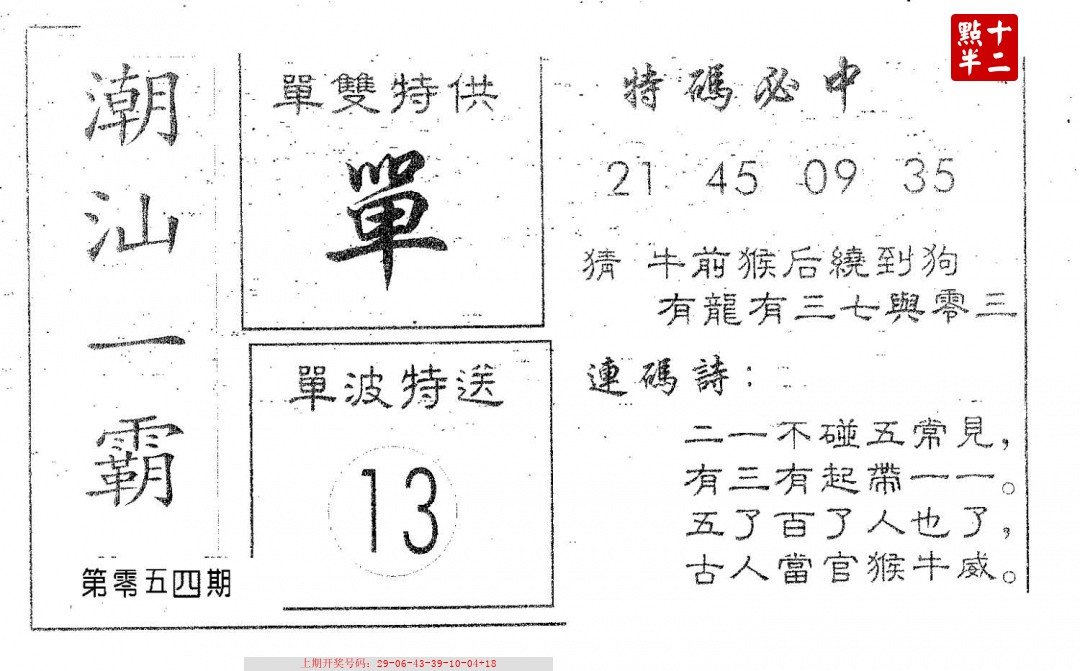 潮汕一霸
第零五四期
單雙特供
單
單波特送
13
特碼必中
21 45 09 35
猜 牛前猴后繞到狗
有龍有三七與零三
連碼詩：
二一不碰五常見，
有三有起帶一一。
五了百了人也了，
古人當官猴牛威。
十二
點半
上期开奖号码：29-06-43-39-10-04+18